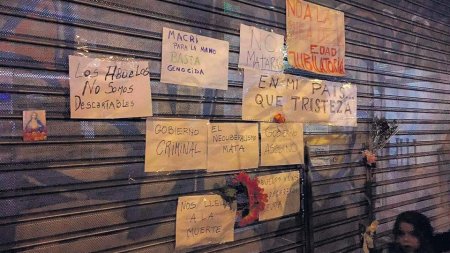 LOS ABUELOS
NO SOMOS
DESCARTABLES
MACRI
PARA LA MANO
BASTA
GENOCIDA
NO
MATAR
NO A LA
EDAD
JUBILATORIA
EN MI PAIS
QUE TRISTEZA
GOBIERNO
CRIMINAL
EL
NEOLIBERALISMO
MATA
GOBIERNO
ASESINO
NOS LLEVA
A LA
MUERTE